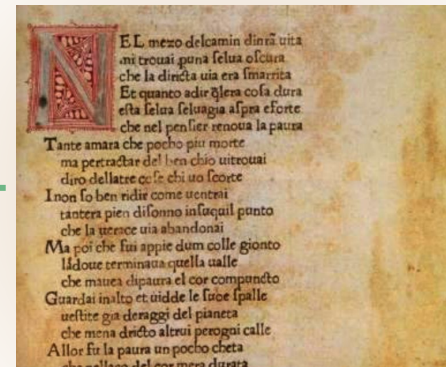 NEL mezo delcamin dinrã uita
mi trouai puna ſelua oſcura
che la diricta uia era ſmarrita
Et quanto adir q̃lera coſa dura
eſta ſelua ſeluagia aſpra eForte
che nel penſier renoua la paura
Tante amara che pocho piu morte
ma pertractar del ben chio uitrouai
diro dellatre coſe chi uo ſcorte
Inon ſo ben ridir come uentrai
tantera pien diſonno inſuquil punto
che la uerace uia abandonai
Ma poi che fui appie dum colle gionto
ladoue terminaua quella ualle
che mauea dipaura el cor compuncto
Guardai inalto et uidde le ſuoe ſpalle
ueſtite gia deraggi del pianeta
che mena dricto altrui perogni calle
Allor fu la paura un pocho cheta
che nellaco del cor mera durata